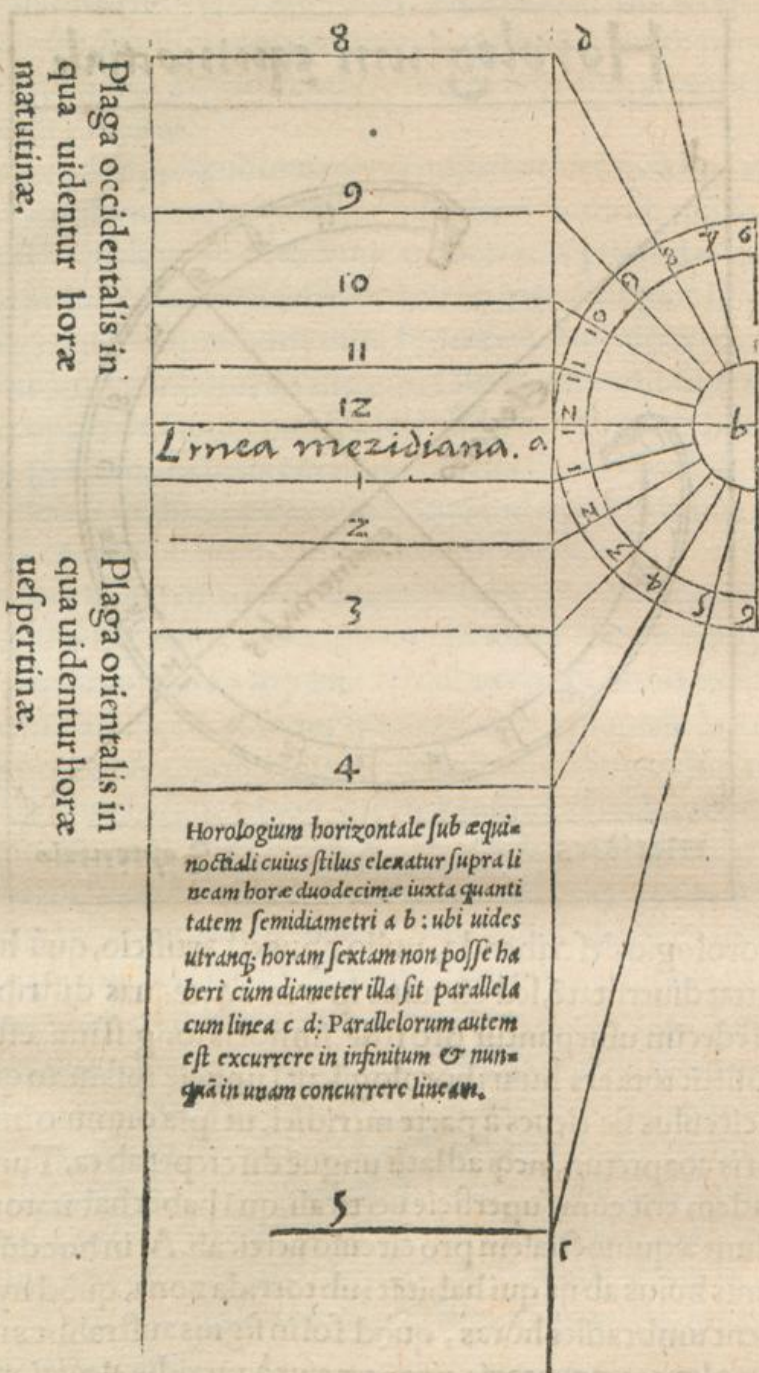 Plaga occidentalis in
qua uidentur horæ
matutinæ.
Plaga orientalis in
qua uidentur horæ
ueſpertinæ.
8
d
9
10
11
12
Linea meridiana. a
1
2
3
4
6
7
8
9
10
11
12
1
2
3
4
5
6
b
Horologium horizontale ſub æqui=
noctiali cuius ſtilus eleuatur ſupra li
neam horæ duodecimæ iuxta quanti
tatem ſemidiametri a b : ubi uides
utranq; horam ſextam non poſſe ha
beri cùm diameter illa ſit parallela
cum linea c d; Parallelorum autem
eſt excurrere in infinitum & nun=
quā in unam concurrere lineam.
5
c